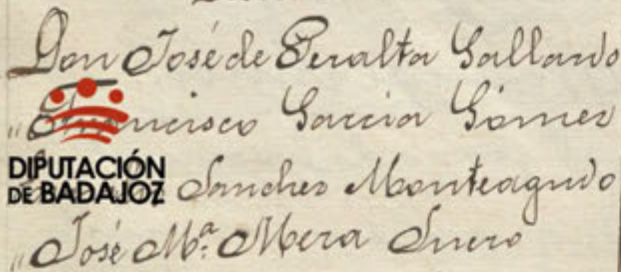 Don José de Peralta Gallardo
" Francisco Garcia Gómez
DIPUTACIÓN
DE BADAJOZ
Sanchez Monteagudo
" José Mª. Mera Suero